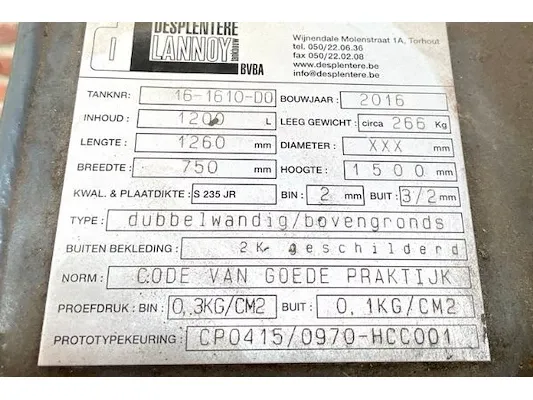 DESPLENTERE
LANNOY
BVBA
Wijnendale Molenstraat 1A, Torhout
tel. 050/22.06.36
fax 050/22.02.08
www.desplentere.be
info@desplentere.be
TANKNR: 16-1610-D0 BOUWJAAR: 2016
INHOUD: 1200 L LEEG GEWICHT: circa 266 Kg
LENGTE: 1260 mm DIAMETER: XXX mm
BREEDTE: 750 mm HOOGTE: 1500 mm
KWAL. & PLAATDIKTE: S 235 JR BIN: 2 mm BUIT: 3/2 mm
TYPE: dubbelwandig/bovengronds
BUITEN BEKLEDING: 2K geschilderd
NORM: CODE VAN GOEDE PRAKTIJK
PROEFDRUK: BIN: 0,3KG/CM2 BUIT: 0,1KG/CM2
PROTOTYPEKEURING: CP0415/0970-HCC001